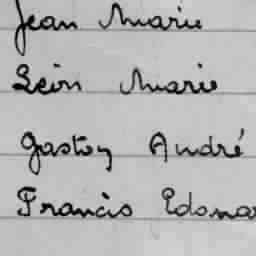 Jean Marie
Léon Marie
Gaston André
Francis